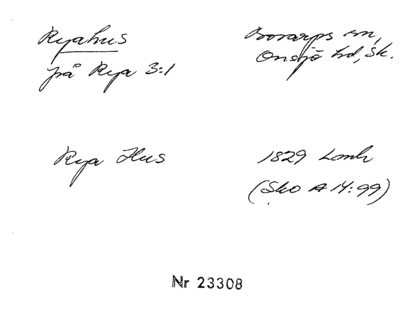 Ryahus
på Rya 3:1
Bosarps sn,
Onsjö hd, Sk.
Rya Hus
1829 Lomh
(Sko A 14:99)
Nr 23308